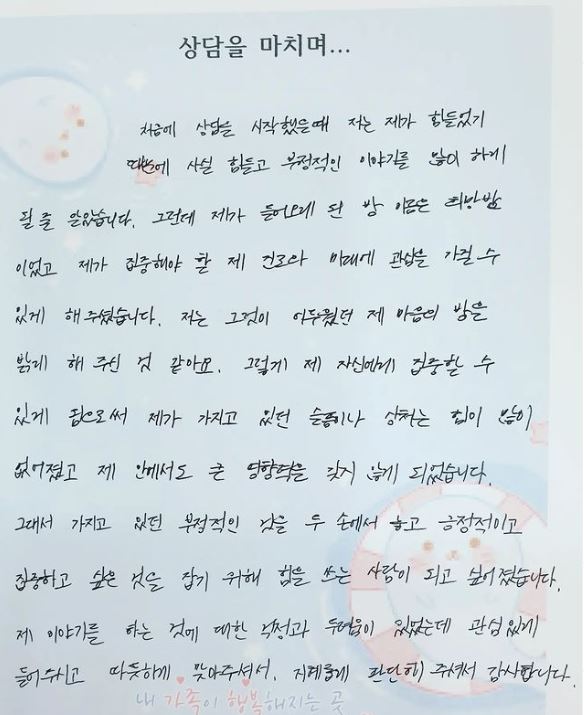 상담을 마치며...
처음에 상담을 시작했을때 저는 제가 힘들었기
때문에 사실 힘들고 부정적인 이야기를 많이 하게
될 줄 알았습니다. 그런데 제가 들어오게 된 방 이름은 희망방
이었고 제가 집중해야 할 제 진로와 미래에 관심을 가질 수
있게 해 주셨습니다. 저는 그것이 어두웠던 제 마음의 방을
밝게 해 주신 것 같아요. 그렇게 제 자신에게 집중할 수
있게 됨으로써 제가 가지고 있던 슬픔이나 상처는 힘이 많이
없어졌고 제 안에서도 큰 영향력을 갖지 않게 되었습니다.
그래서 가지고 있던 부정적인 낫을 두 손에서 놓고 긍정적이고
집중하고 싶은 것을 잡기 위해 힘을 쓰는 사람이 되고 싶어졌습니다.
제 이야기를 하는 것에 대한 걱정과 두려움이 있었는데 관심있게
들어주시고 따듯하게 맞아주셔서, 지혜롭게 판단해 주셔서 감사합니다.
내 가족이 행복해지는 곳